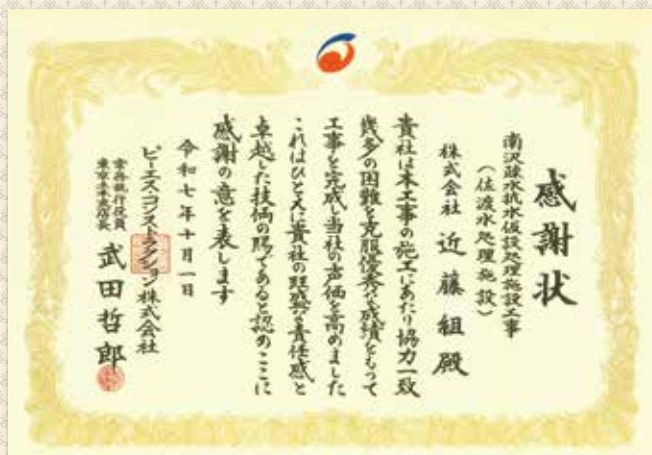 感謝状
南沢疎水坑水仮設処理施設工事
(佐渡水処理施設)
株式会社 近藤組殿
貴社は本工事の施工にあたり協力一致
幾多の困難を克服優秀な成績をもって
工事を完成し当社の声価を高めました
これはひとえに貴社の旺盛な責任感と
卓越した技価の賜であると認めここに
感謝の意を表します
令和七年十月一日
ピーエス・コンストラクション株式会社
常務執行役員
東京土木支店長 武田哲郎